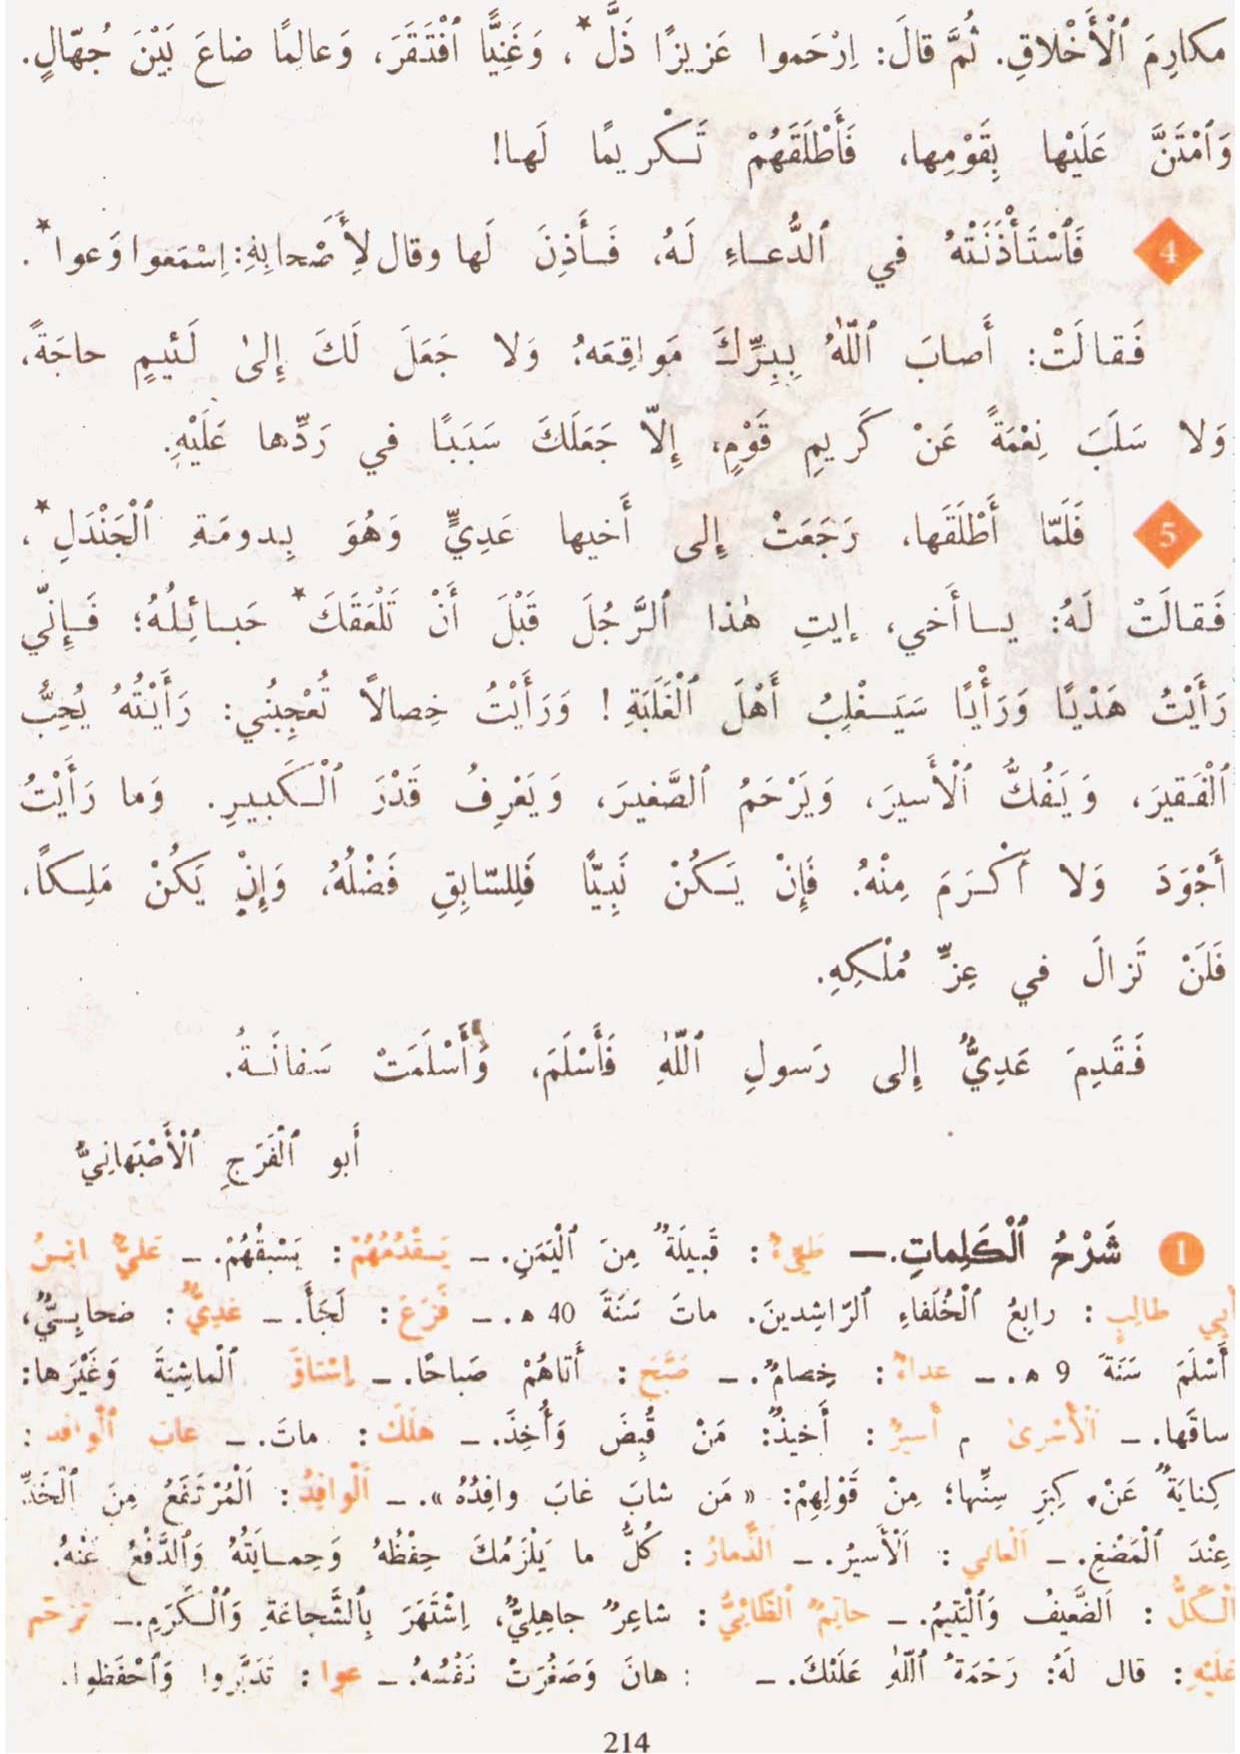 مكارِمَ ٱلْأَخْلاقِ. ثُمَّ قالَ: اِرْحَموا عَزيزًا ذَلَّ*، وَغَنِيًّا ٱفْتَقَرَ، وَعالِمًا ضاعَ بَيْنَ جُهّالٍ.
وَٱمْتَنَّ عَلَيْها بِقَوْمِها، فَأَطْلَقَهُمْ تَكْريمًا لَها!
4 فَٱسْتَأْذَنَتْهُ في ٱلدُّعاءِ لَهُ، فَأَذِنَ لَها وقال لِأَصْحابِهِ: اِسْمَعوا وَعوا*.
فَقالَتْ: أَصابَ ٱللّٰهُ بِبِرِّكَ مَواقِعَهُ؛ وَلا جَعَلَ لَكَ إِلىٰ لَئيمٍ حاجَةً،
وَلا سَلَبَ نِعْمَةً عَنْ كَريمِ قَوْمٍ، إِلاّ جَعَلَكَ سَبَبًا في رَدِّها عَلَيْهِ.
5 فَلَمّا أَطْلَقَها، رَجَعَتْ إِلى أَخيها عَدِيٍّ وَهُوَ بِدومَةِ ٱلْجَنْدَلِ*،
فَقالَتْ لَهُ: يا أَخي، إيتِ هٰذا ٱلرَّجُلَ قَبْلَ أَنْ تَلْعَقَكَ* حَبائِلُهُ؛ فَإِنّي
رَأَيْتُ هَدْيًا وَرَأْيًا سَيَغْلِبُ أَهْلَ ٱلْغَلَبَةِ! وَرَأَيْتُ خِصالاً تُعْجِبُني: رَأَيْتُهُ يُحِبُّ
ٱلْفَقيرَ، وَيَفُكُّ ٱلْأَسيرَ، وَيَرْحَمُ ٱلصَّغيرَ، وَيَعْرِفُ قَدْرَ ٱلْكَبيرِ. وَما رَأَيْتُ
أَجْوَدَ وَلا أَكْرَمَ مِنْهُ. فَإِنْ يَكُنْ نَبِيًّا فَلِلسّابِقِ فَضْلُهُ، وَإِنْ يَكُنْ مَلِكاً،
فَلَنْ تَزالَ في عِزِّ مُلْكِهِ.
فَقَدِمَ عَدِيٌّ إِلى رَسولِ ٱللّٰهِ فَأَسْلَمَ، وَأَسْلَمَتْ سَفانَةُ.
أَبو ٱلْفَرَجِ ٱلْأَصْبَهانِيُّ
1 شَرْحُ ٱلْكَلِماتِ. — طَيِّءٌ: قَبيلَةٌ مِنَ ٱلْيَمَنِ. – يَقْدُمُهُمْ: يَسْبِقُهُمْ. – عَلِيٌّ ابْنُ
أَبي طالِبٍ: رابِعُ ٱلْخُلَفاءِ ٱلرّاشِدينَ. ماتَ سَنَةَ 40 ه. – فَزِعَ: لَجَأَ. – عَدِيٌّ: صَحابِيٌّ،
أَسْلَمَ سَنَةَ 9 ه. – عداءٌ: خِصامٌ. – صَبَّحَ: أَتاهُمْ صَباحًا. – اِسْتاقَ ٱلْماشِيَةَ وَغَيْرَها:
ساقَها. – ٱلْأَسْرىٰ م أَسيرٌ: أَخيذٌ: مَنْ قُبِضَ وَأُخِذَ. – هَلَكَ: ماتَ. – غابَ ٱلْوافِد:
كِنايَةٌ عَنْ كِبَرِ سِنِّها؛ مِنْ قَوْلِهِمْ: « مَن شابَ غابَ وافِدُهُ ». – اَلْوافِدُ: اَلْمُرْتَفِعُ مِنَ ٱلْخَدِّ
عِنْدَ ٱلْمَضْغِ. – اَلْعاني: اَلْأَسيرُ. – الذِّمارُ: كُلُّ ما يَلْزَمُكَ حِفْظُهُ وَحِمايَتُهُ وَٱلدَّفْعُ عَنْهُ.
اَلْكَلُّ: اَلضَّعيفُ وَٱلْيَتيمُ. – حاتِمٌ ٱلطّائِيُّ: شاعِرٌ جاهِلِيٌّ، اِشْتَهَرَ بِٱلشَّجاعَةِ وَٱلْكَرَمِ. – تَرَحَّم
عَلَيْهِ: قال لَهُ: رَحْمَةُ ٱللّٰهِ عَلَيْكَ. – : هانَ وَصَغُرَتْ نَفْسُهُ. – عوا: تَدَبَّروا وَٱحْفَظوا.
214